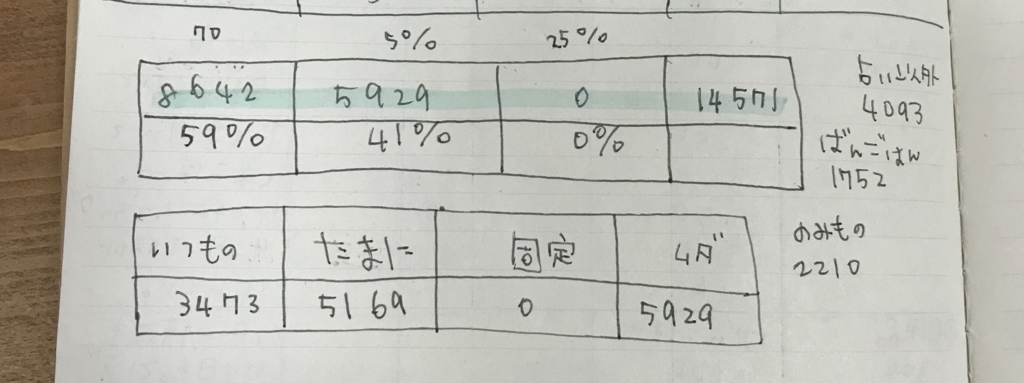 70 5% 25%
8642 5929 0 14571
59% 41% 0%
いつもの たまに 固定
3473 5169 0 5929
4093
ばんごはん
1752
のみもの
2210